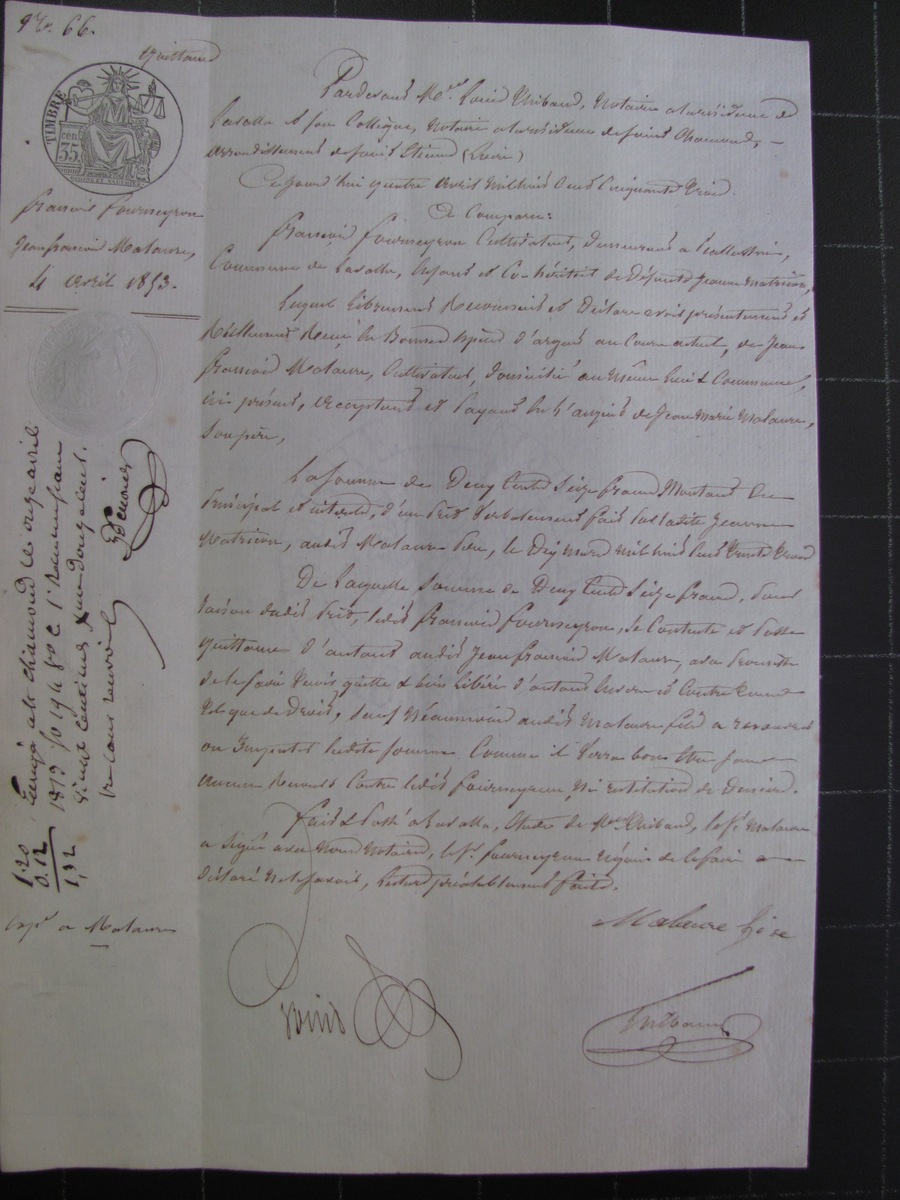 N.º 66.
Quittance
TIMBRE
35
cen
François Fourneyron
Jean françois Malaure,
4 avril 1853.
Pardevant Me. Louis Thibaud, Notaire à la résidence de
Lavalla et son Collègue, Notaire à la résidence de saint Chamond,
arrondissement de saint Etienne (Loire)
Cejourd'hui quatre avril mil huit cent cinquante trois
A Comparu:
François fourneyron Cultivateur, demeurant à
Commune de Lavalla, enfant et Cohéritier de défunte Jeanne Matricon,
Lequel librement Reconnaît et Déclare avoir présentement et
Réellement Reçu en Bonnes espèces d'argent au Cours actuel, de Jean
François Malaure, Cultivateur, domicilié au même lieu & Commune,
ici présent, acceptant et Payant en l'acquit de Jean Marie Malaure,
son père,
La somme de Deux Cent Seize francs Montant En
Principal et intérêts, d'un Prêt Verbalement fait par ladite Jeanne
Matricon, audit Malaure Père, le Dix mars mil huit cent trente trois
De laquelle somme de Deux Cent Seize francs, pour
raison dudit Prêt, ledit François Fourneyron, se Contente et Passe
quittance d'autant audit Jean François Malaure, avec Promesse
de le faire Tenir quitte & bien libéré d'autant envers et Contre tous
tel que de Droit, sauf Néanmoins audit Malaure fils a
ou Imputer ladite somme Comme il Verra bon être sans
aucun Recours Contre ledit Fourneyron, Ni restitution de Deniers.
Fait & Passé à Lavalla, étude de Me. Thibaud, le sr. Malaure
a Signé avec Nous Notaires, le sr. fourneyron requis de le faire a
déclaré Ne le savoir, lecture préalablement faite.
Malaure
Thibaud
Enregé à St chamond le onze avril
1853 fo 194 Ro C. 1re Reçu un franc
vingt centimes pour
1.20
0.12
1,32
Expn a Malaure